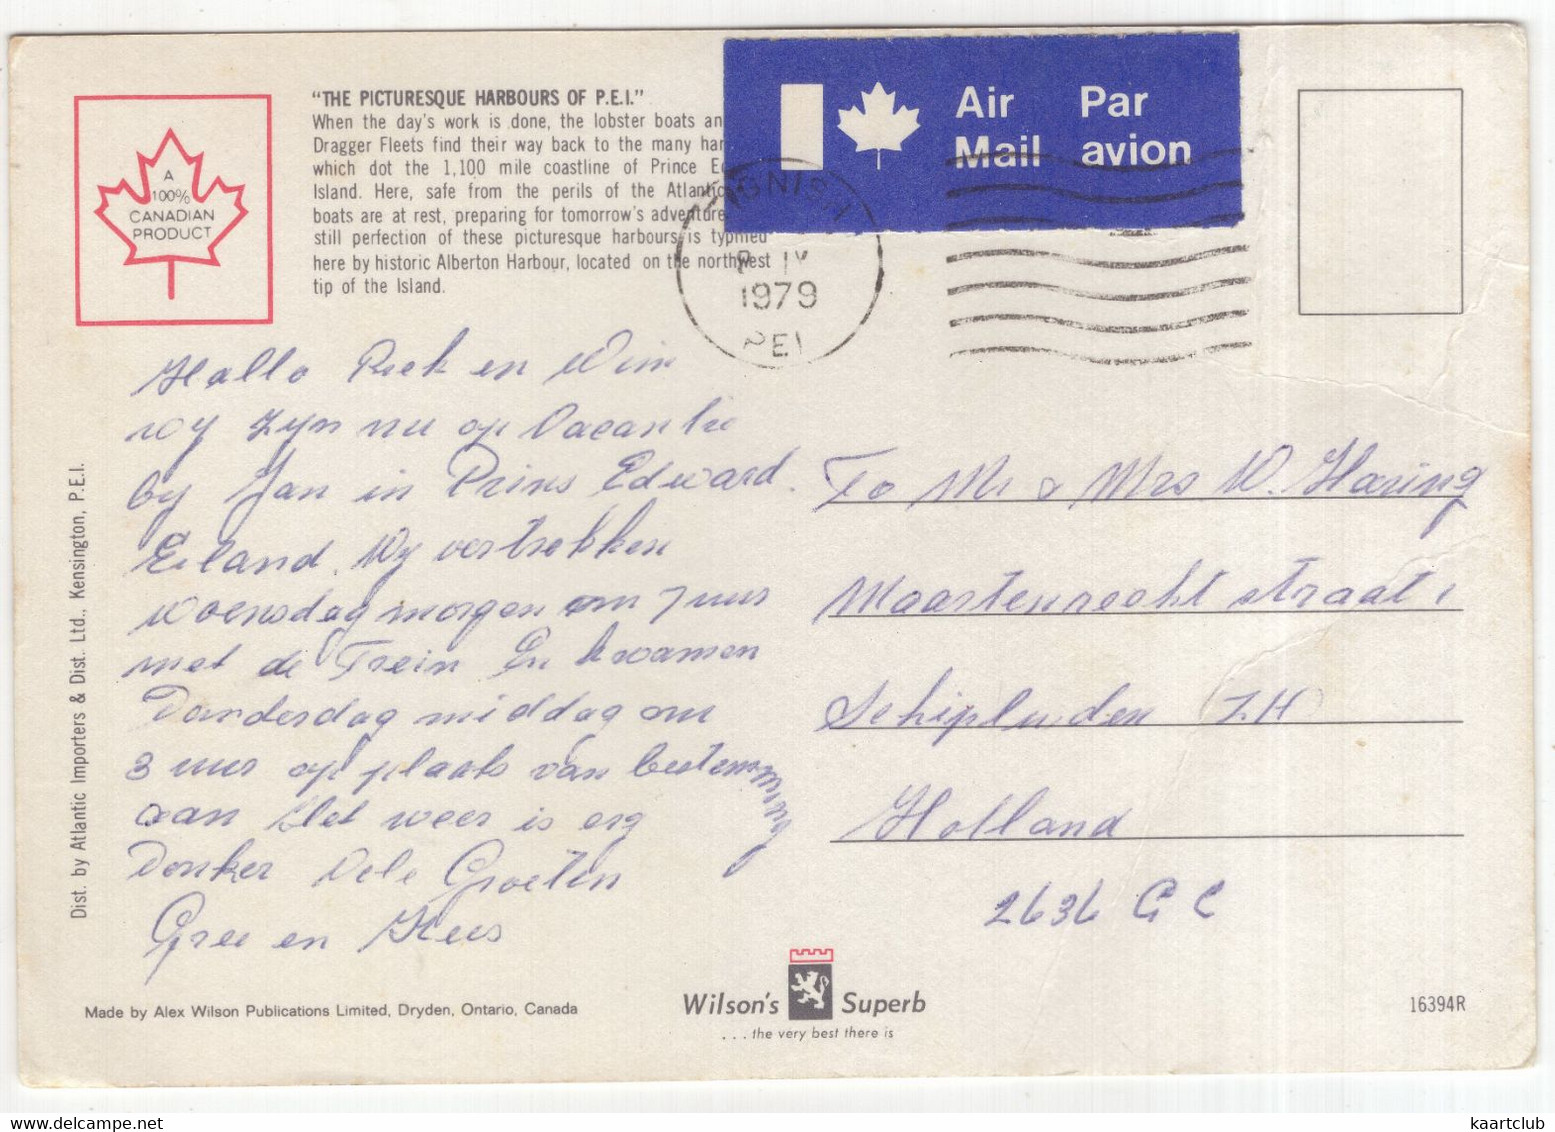 "THE PICTURESQUE HARBOURS OF P.E.I."
When the day's work is done, the lobster boats an
Dragger Fleets find their way back to the many har
which dot the 1,100 mile coastline of Prince E
Island. Here, safe from the perils of the Atlantic
boats are at rest, preparing for tomorrow's adventure
still perfection of these picturesque harbours is typified
here by historic Alberton Harbour, located on the northwest
tip of the Island.
A
100%
CANADIAN
PRODUCT
Air Par
Mail avion
1979
PEI
Hallo Riek en Wim
wy zyn nu op Vacantie
by Jan in Prins Edward
Eiland. Wy vertrekken
Woensdag morgen om 7 uur
met de Trein En kwamen
Donderdag middag om
3 uur op plaats van bestemming
aan Het weer is erg
Donker Vele Groeten
Gree en Kees
To Mr & Mrs W. Haring
Maartenrecht straat 1
Schipluiden ZH
Holland
2636 GC
Dist. by Atlantic Importers & Dist. Ltd., Kensington, P.E.I.
Made by Alex Wilson Publications Limited, Dryden, Ontario, Canada
Wilson's Superb
...the very best there is
16394R
kaartclub